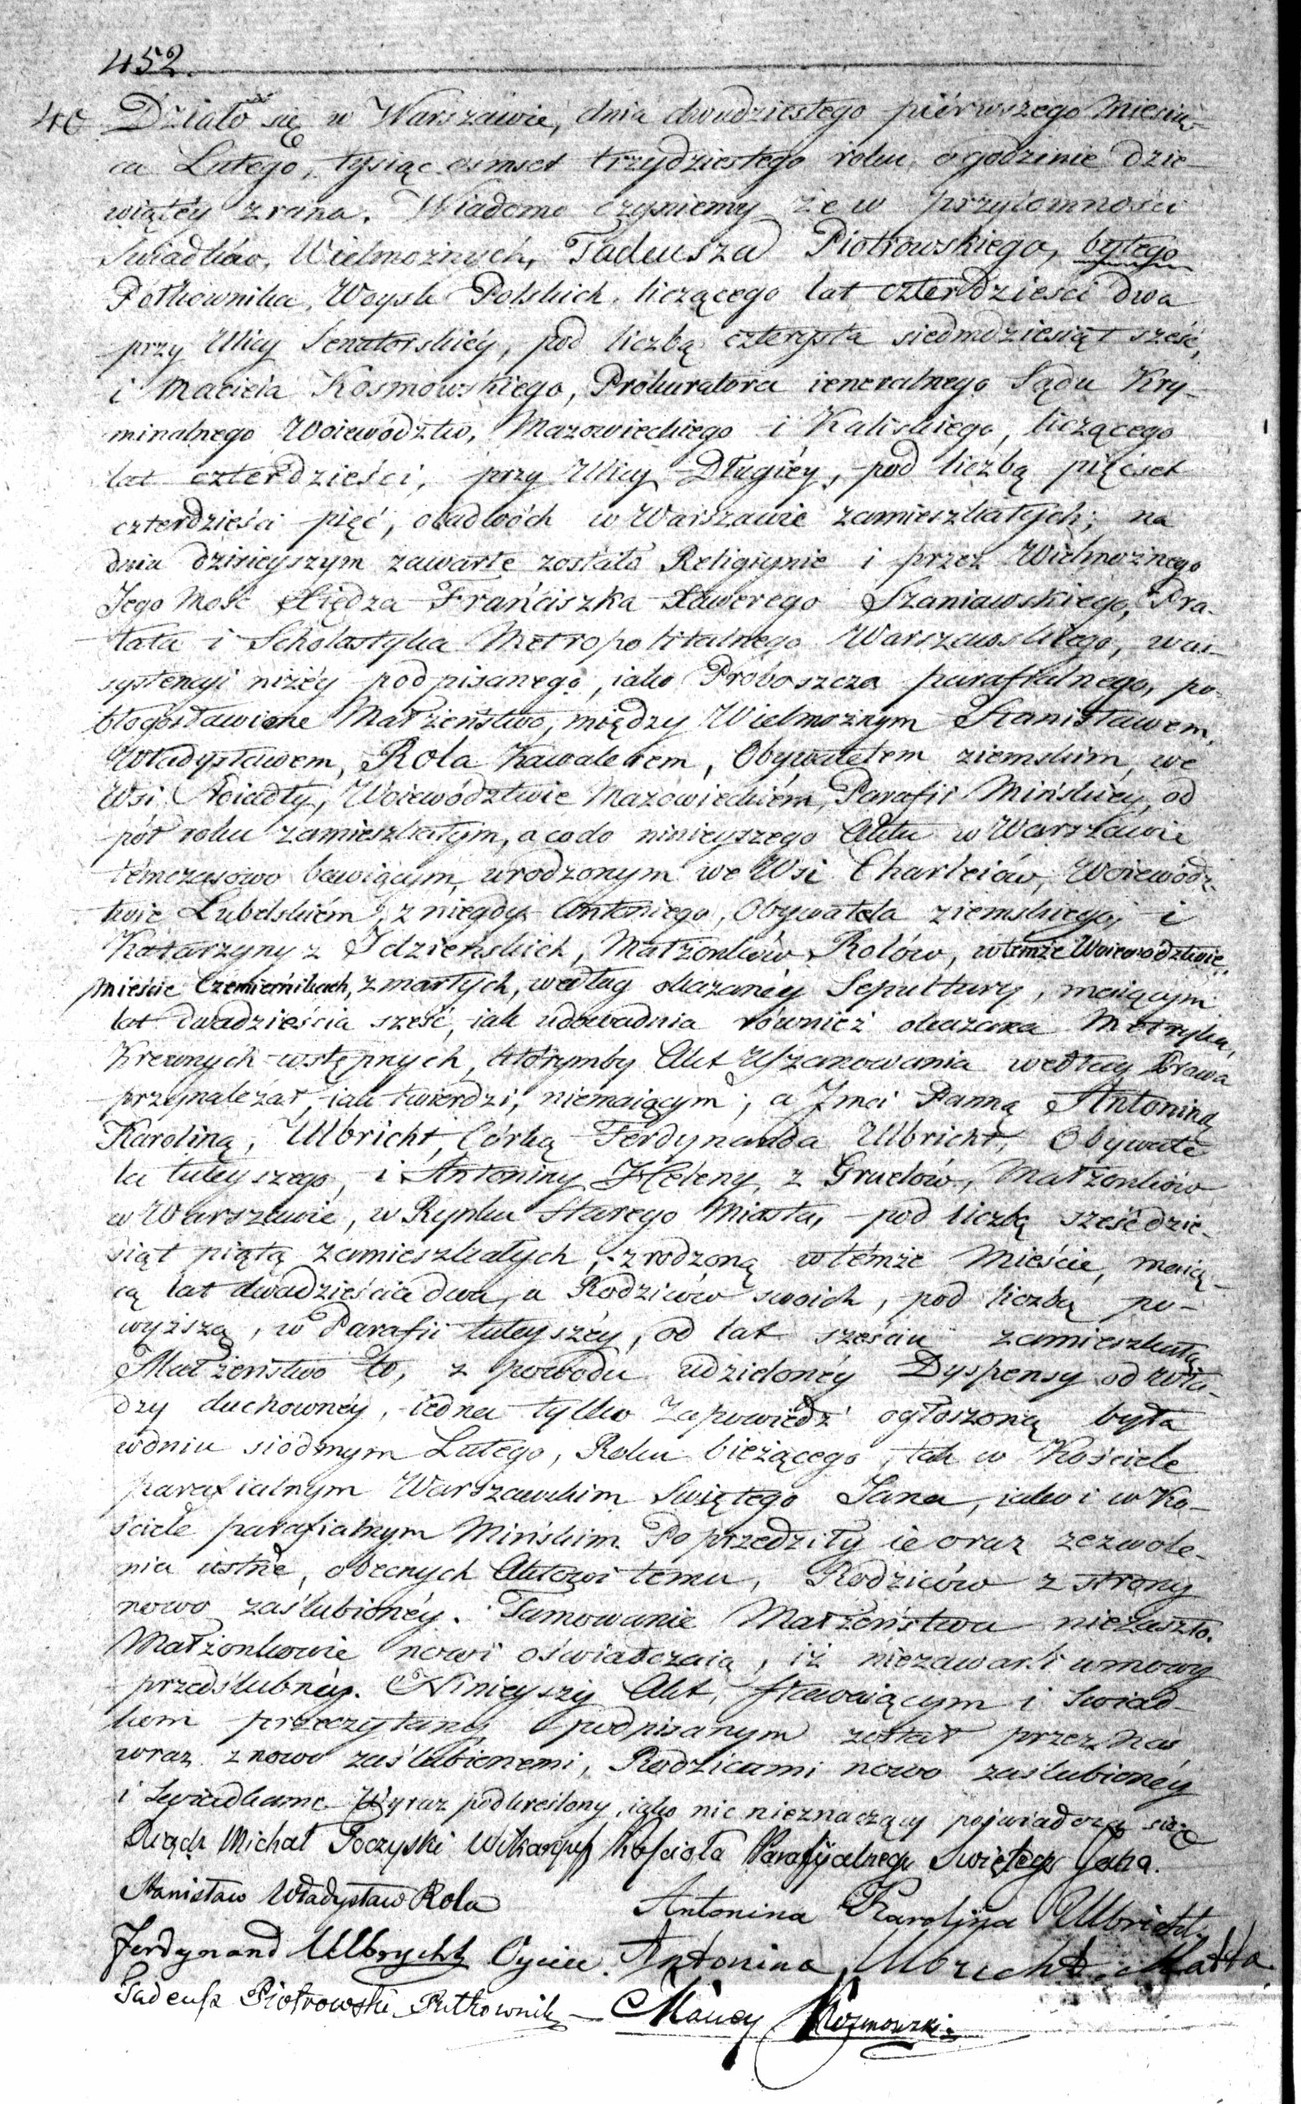 452.
40 Działo się w Warszawie, dnia dwudziestego piérwszego Miesią-
ca Lutego, tysiąc osmset trzydziestego roku o godzinie dzie-
wiątéy zrana. Wiadomo czyniemy że w przytomności
Swiadków, Wielmożnych, Tadeusza Piotrowskiego, byłego
Półkownika, Woysk Polskich, liczącego lat czterdzieści dwa
przy Ulicy Senatorskiéy, pod liczbą czterysta siedmdziesiąt sześć,
i Macieia Kosmowskiego, Prokuratora ieneralnego Sądu Kry-
minalnego Woiewództw, Mazowieckiego i Kaliskiego, liczącego
lat czterdzieści, przy Ulicy Długiéy, pod liczbą pięćset
czterdzieści pięć, obudwóch w Warszawie zamieszkałych; na
dniu dzisieyszym zawarte zostało Religiynie i przez Wielmożnego
Jego Mość Xiędza Franciszka Xawerego Szaniawskiego, Pra-
łata i Scholastyka Metropolitalnego Warszawskiego, w as-
systencyi niżéy podpisanego, iako Proboszcza parafialnego, po-
błogosławione Małżeństwo, między Wielmożnym Stanisławem,
Władysławem, Rola Kawalerem, Obywatelem ziemskim, we
Wsi Woiewództwie Mazowieckiém, Parafii Mińskiéy, od
pół roku zamieszkałym, a co do ninieyszego Aktu w Warszawie
témczasowo bawiącym, urodzonym we Wsi Charleiów, Woiewódz-
twie Lubelskiém, z niegdy Antoniego, Obywatela ziemskiego, i
Katarzyny z Idzieńskich, Małżonków Rolów, w temże Woiewództwie,
Mieście Czemiernikach, zmarłych, według okazanéy Sepultury, maiącym
lat dwadzieścia sześć, iak udowadnia również okazana Metryka,
Krewnych wstępnych, którymby Akt Uszanowania według Prawa
przynależał, iak twierdzi, niemaiącym, a Jmci Panną Antoniną
Karoliną, Ulbricht, Córką Ferdynanda Ulbricht, Obywate-
la tuteyszego, i Antoniny Heleny z Gruelów, Małżonków
w Warszawie, w Rynku Starego Miasta, pod liczbą sześćdzie-
siąt piątą zamieszkałych, zrodzoną w témże Mieście, maią-
cą lat dwadzieścia dwa, a Rodziców swoich, pod liczbą po-
wyższą, w Parafii tuteyszéy, od lat sześciu zamieszkałą
Małżeństwo to, z powodu udzielonéy Dyspensy od Wła-
dzy duchownéy, iedna tylko Zapowiedź ogłoszoną była
w dniu siódmym Lutego, Roku bieżącego, tak w Kościele
parafialnym Warszawskim Swiętego Jana, iako i w Ko-
ściele parafialnym Mińskim. Poprzedziły ie oraz zezwole-
nia ustne, obecnych Aktowi temu, Rodziców z strony
nowo zaślubionéy. Tamowanie Małżeństwa niezaszło.
Małżonkowie nowi oświadczaią, iż niezawarli umowy
przedślubnéy. Ninieyszy Akt, stawaiącym i Swiad-
kom przeczytany podpisanym został przez Nas
wraz z nowo zaślubionemi, Rodzicami nowo zaślubionéy
i Swiadkame Wyraz podkreślony, iako nic nieznaczący poświadcza się
Xiądz Michał Wikaryusz Kościoła Parafijalnego Swiętego Jana.
Stanisław Władysław Rola Antonina Karolina Ulbricht
Ferdynand Ulbrycht Oyciec. Antonina Ulbricht Matka
Tadeusz Piotrowski Półkownik Maciey Kozmowski